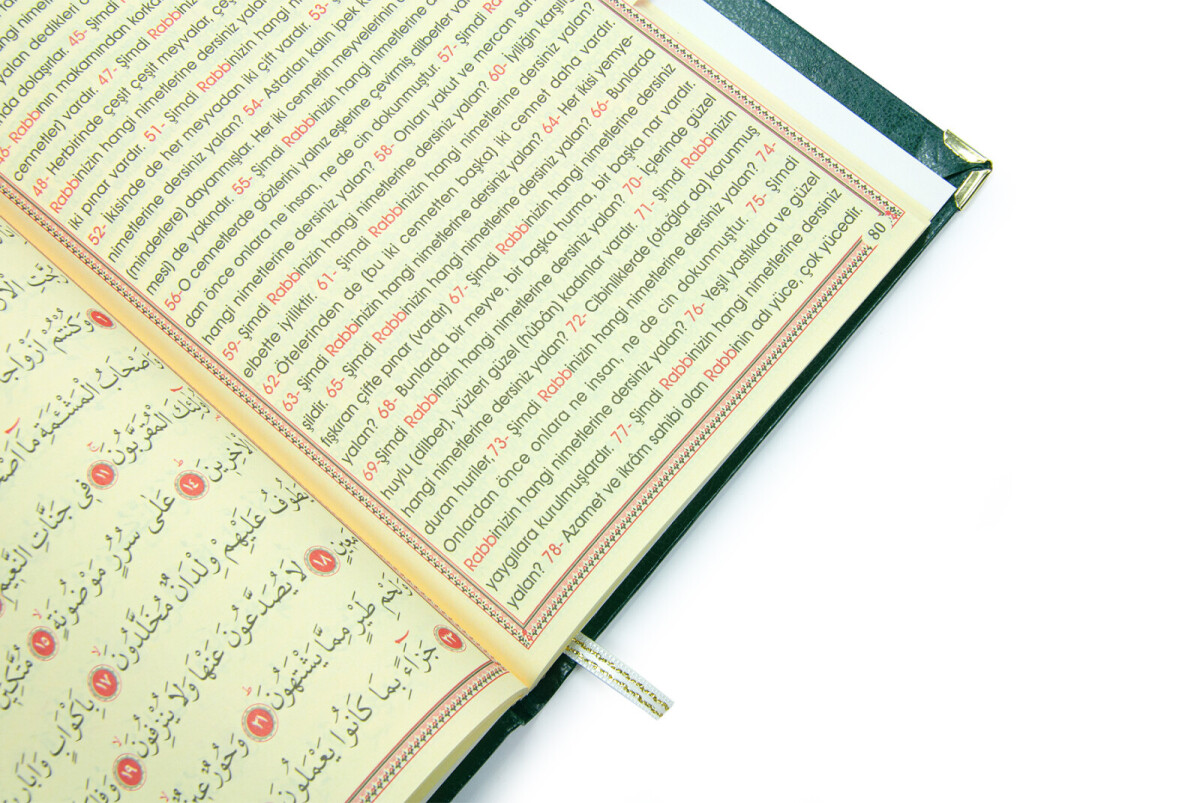 yalan dedikleri
da dolaşırlar. 45- Şimdi
Rabbının makamından korka
cennet(ler) vardır. 47- Şimdi Rabbinizin
48- Herbirinde çeşit çeşit meyvalar, çeş
Rabbinizin hangi nimetlerine dersiniz yalan
iki pınar vardır. 51- Şimdi Rabbinizin hangi n
52- İkisinde de her meyvadan iki çift vardır. 53- Ş
nimetlerine dersiniz yalan? 54- Astarları kalın ipek k
(minderlere) dayanmışlar. Her iki cennetin meyvelerinin
mesi de yakındır. 55- Şimdi Rabbinizin hangi nimetlerine
56-O cennetlerde gözlerini yalnız eşlerine çevirmiş dilberler var
dan önce onlara ne insan, ne de cin dokunmuştur. 57- Şimdi Ra
hangi nimetlerine dersiniz yalan? 58- Onlar yakut ve mercan san
59- Şimdi Rabbinizin hangi nimetlerine dersiniz yalan? 60- İyiliğin karşılı
elbette iyiliktir. 61- Şimdi Rabbinizin hangi nimetlerine dersiniz yalan?
62-Ötelerinden de (bu iki cennetten başka) iki cennet daha vardır.
63- Şimdi Rabbinizin hangi nimetlerine dersiniz yalan? 64- Her ikisi yemye-
şildir. 65- Şimdi Rabbinizin hangi nimetlerine dersiniz yalan? 66- Bunlarda
fışkıran çifte pınar (vardır) 67- Şimdi Rabbinizin hangi nimetlerine dersiniz
yalan? 68- Bunlarda bir meyve, bir başka hurma, bir başka nar vardır.
69-Şimdi Rabbinizin hangi nimetlerine dersiniz yalan? 70- İçlerinde güzel
huylu (dilber), yüzleri güzel (hûbân) kadınlar vardır. 71- Şimdi Rabbinizin
hangi nimetlerine dersiniz yalan? 72- Cibinliklerde (otağlar da) korunmuş
duran huriler, 73- Şimdi Rabbinizin hangi nimetlerine dersiniz yalan? 74-
Onlardan önce onlara ne insan, ne de cin dokunmuştur. 75- Şimdi
Rabbinizin hangi nimetlerine dersiniz yalan? 76- Yeşil yastıklara ve güzel
yaygılara kurulmuşlardır. 77- Şimdi Rabbinizin hangi nimetlerine dersiniz
yalan? 78- Azamet ve ikrâm sahibi olan Rabbinin adı yüce, çok yücedir.
80
وَكُنْتُمْ اَزْوَاجًا
الْمَشْئَمَةِ مَٓا
الْمُقَرَّبُونَ ۝١١ فِى جَنَّاتِ النَّعِيمِ
الْاٰخِرِينَ ۝١٤ عَلٰى سُرُرٍ مَوْضُونَةٍ ۝١٥
عَلَيْهِمْ وِلْدَانٌ مُخَلَّدُونَ ۝١٧ بِاَكْوَابٍ
۝١٨ لَا يُصَدَّعُونَ عَنْهَا وَلَا يُنْزِفُونَ ۝١٩
طَيْرٍ مِمَّا يَشْتَهُونَ ۝٢١ وَحُورٌ عِينٌ
جَزَٓاءً بِمَا كَانُوا يَعْمَلُونَ